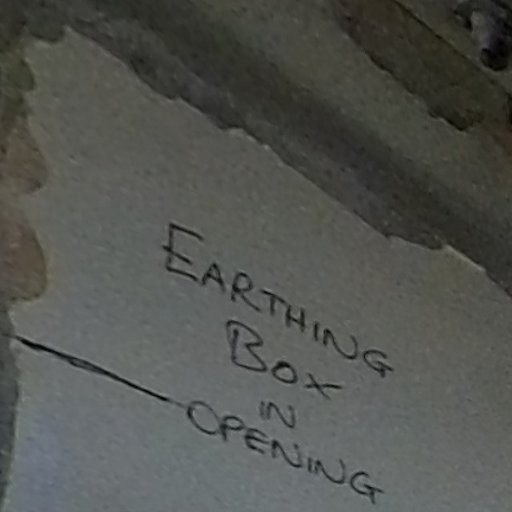 EARTHING
BOX
IN
OPENING